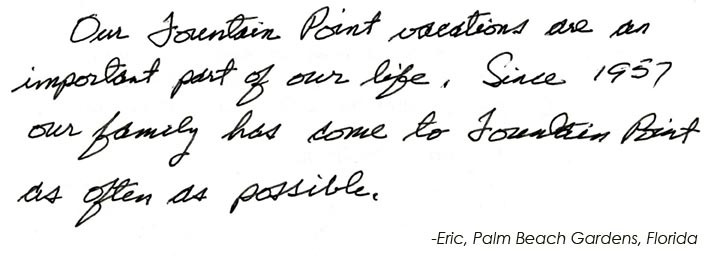 Our Fountain Point vacations are an
important part of our life. Since 1957
our family has come to Fountain Point
as often as possible.
-Eric, Palm Beach Gardens, Florida